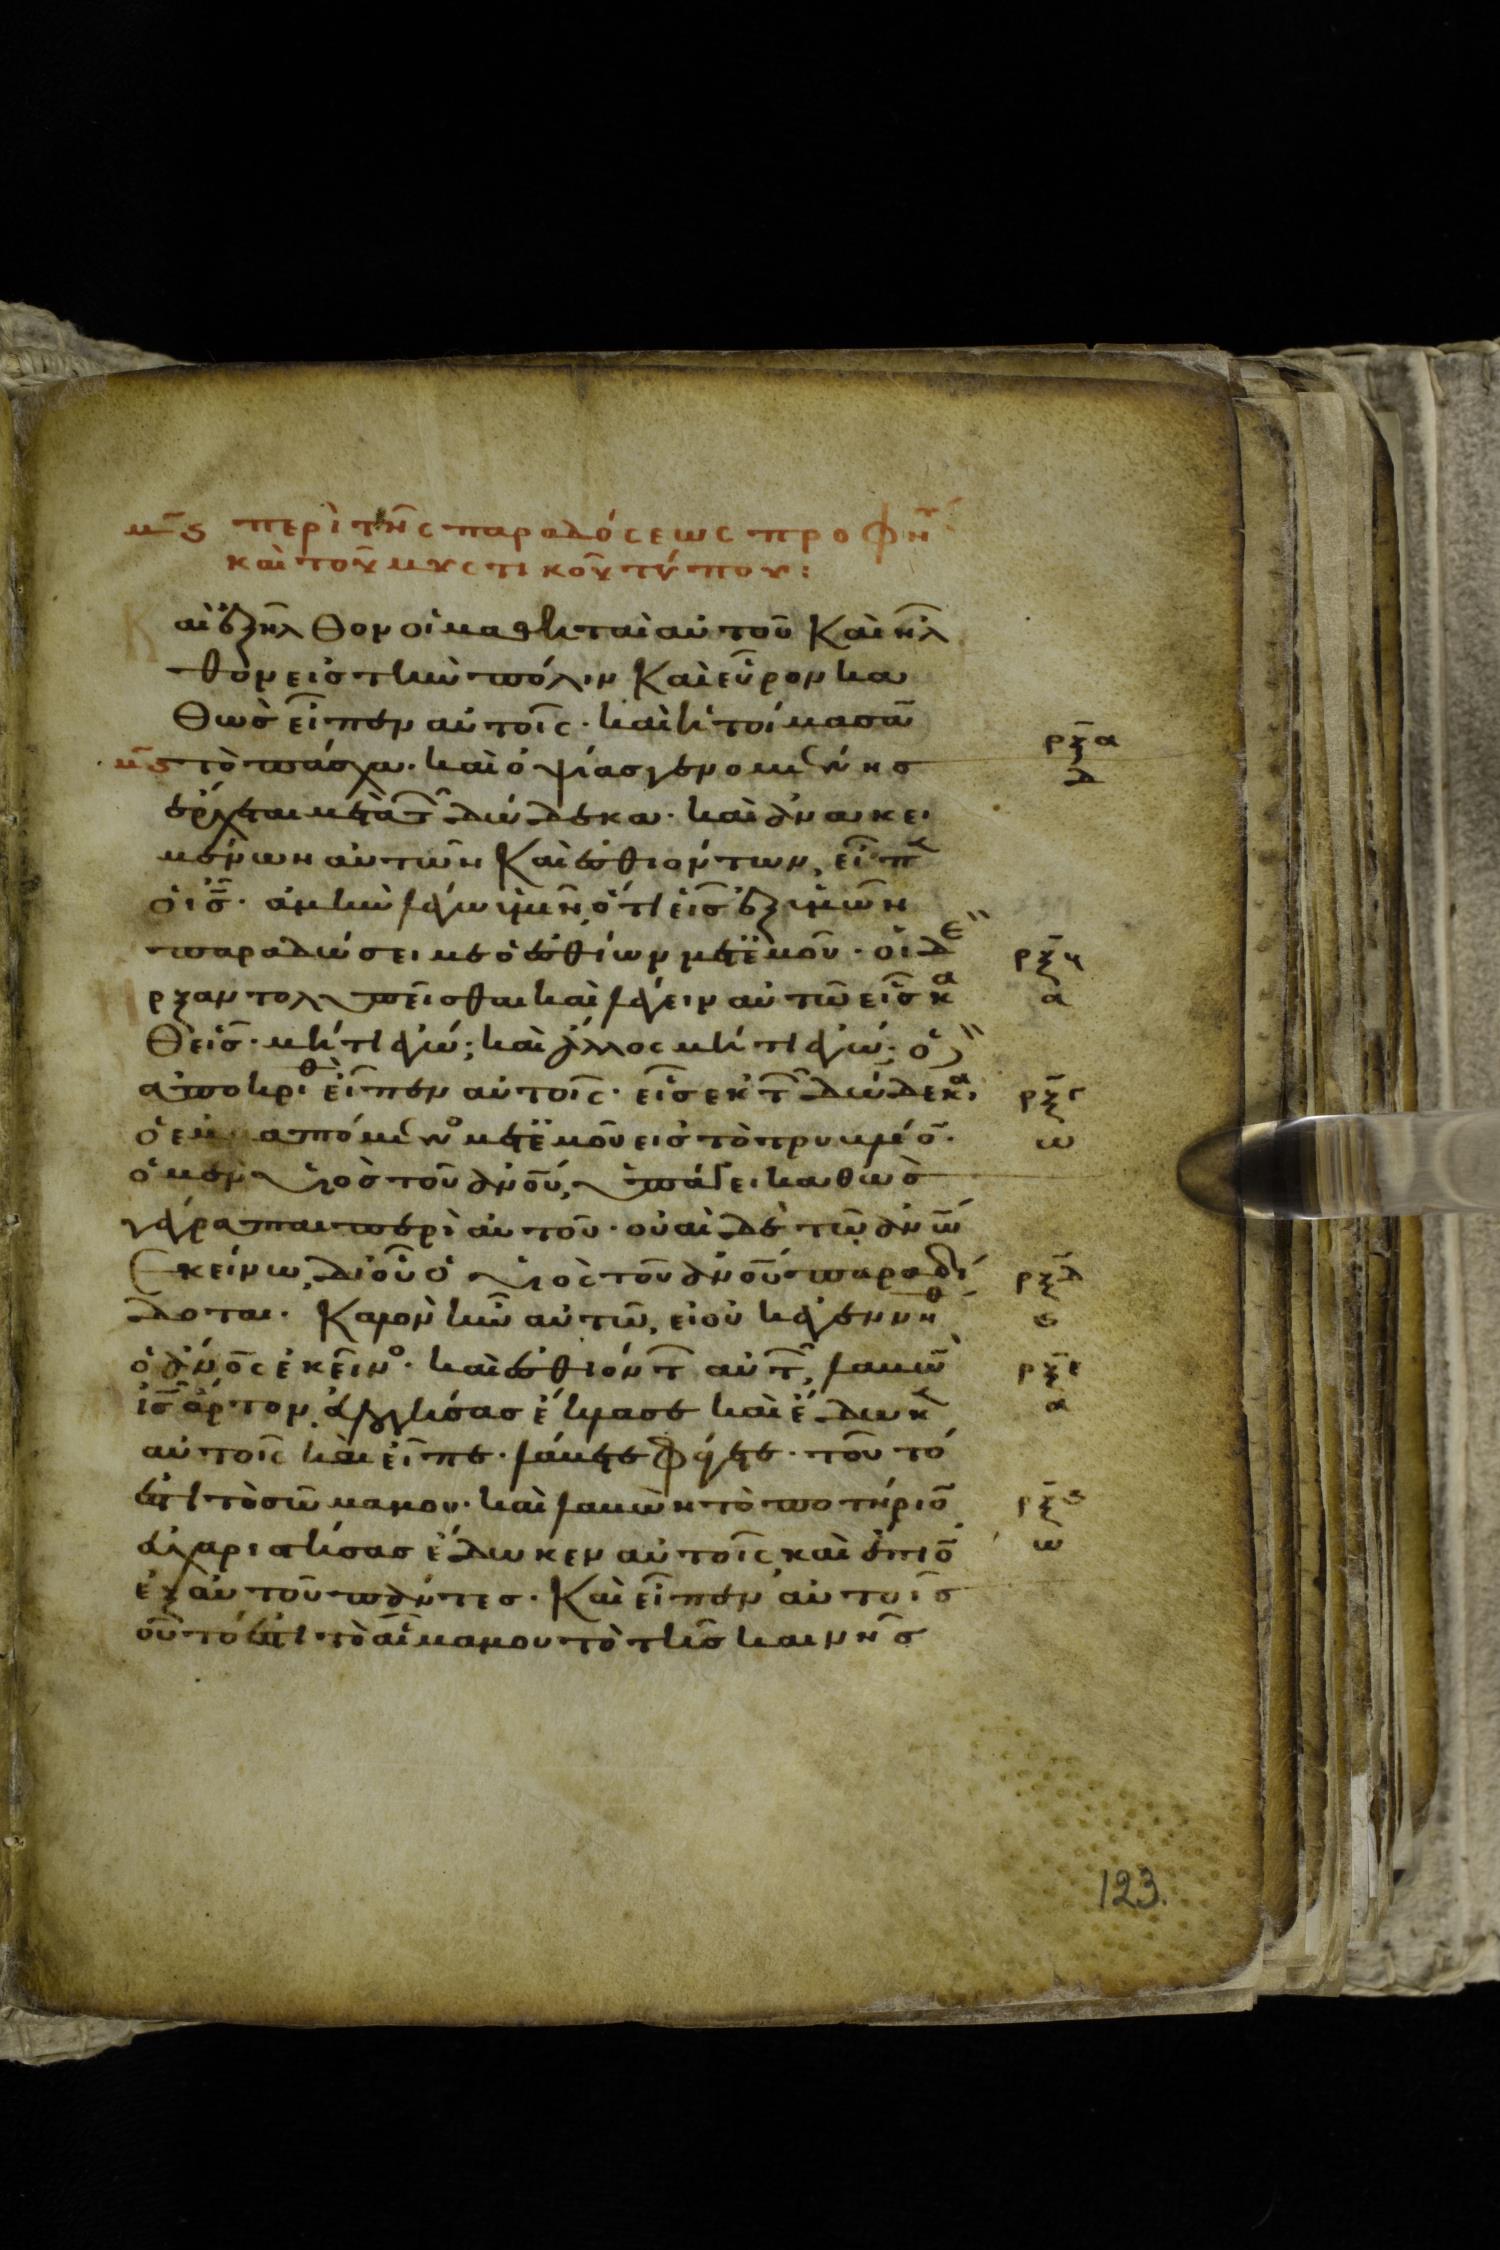 μς περὶ τῆς παραδόσεως προφητ
καὶ τοῦ μυστικοῦ τύπου:
Καὶ ἐξῆλθον οἱ μαθηταὶ αὐτοῦ Καὶ ἦλ
θον εἰς τὴν πόλιν Καὶ εὗρον κα
θὼς εἶπεν αὐτοῖς· καὶ ἡτοίμασαν
μς τὸ πάσχα· καὶ ὀψίας γενομένης
ρξα
δ
ἔρχεται μετὰ τῶν δώδεκα· καὶ ἀνακει
μένων αὐτῶν Καὶ ἐσθιόντων, εἶπεν
ὁ ις̄· ἀμὴν λέγω ὑμῖν, ὅτι εἷς ἐξ ὑμῶν
παραδώσει με ὁ ἐσθίων μετ ἐμοῦ· οἱ δὲ ἤ
ρξβ
α
ρξαντο λυπεῖσθαι καὶ λέγειν αὐτῷ εἷς κα
θεῖς· μήτι ἐγώ; καὶ ἄλλος μήτι ἐγώ; ὁ δὲ
ἀποκριθεὶς εἶπεν αὐτοῖς· εἷς ἐκ τῶν δώδεκα,
ρξγ
ω
ὁ ἐμβαπτόμενος μετ ἐμοῦ εἰς τὸ τρυβλίον·
ὁ μὲν υἱὸς τοῦ ἀνου, ὑπάγει καθὼς
γέγραπται περὶ αὐτοῦ· οὐαὶ δὲ τῷ ἀνω
Ἐκείνω, δι οὗ ὁ υἱὸς τοῦ ἀνου παραδί
ρξδ
ς
δοται· Καλὸν ἦν αὐτῷ, εἰ οὐκ ἐγεννήθη
ὁ ἀνος ἐκεῖνος· καὶ ἐσθιόντων αὐτῶν, λαβὼν ὁ
ρξε
α
ις̄ ἄρτον, εὐλογήσας ἔκλασε καὶ ἔδωκεν
αὐτοῖς καὶ εἶπε· λάβετε φάγετε· τοῦτό
ἐστι τὸ σῶμα μου· καὶ λαβὼν τὸ ποτήριον
ρξς
ω
εὐχαριστήσας ἔδωκεν αὐτοῖς, καὶ ἔπιον
ἐξ αὐτοῦ πάντες· Καὶ εἶπεν αὐτοῖς
τοῦτό ἐστι τὸ αἷμα μου τὸ τῆς καινῆς
123.